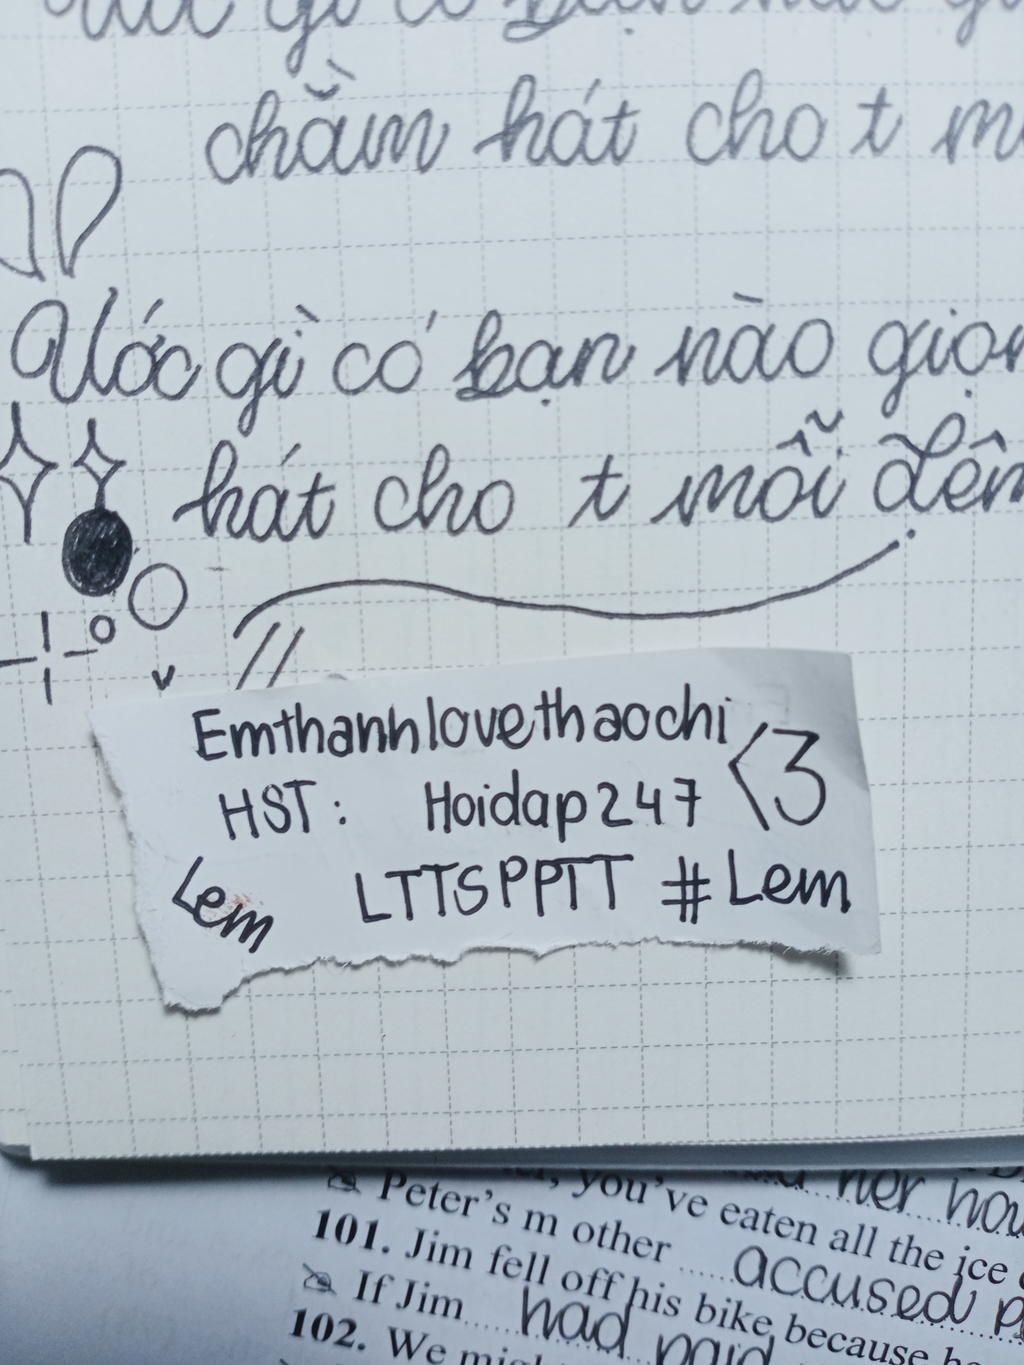 gì có
chăm hát cho t
Ước gì có bạn nào
hát cho t mỗi đêm
Emthanhlovethaochi
<3
HST: Hoidap247
Lem LTTSPPTT #Lem
you've eaten all the ice
Peter's m other ..... accused
101. Jim fell off his bike because
If Jim ..... had paid
102. We